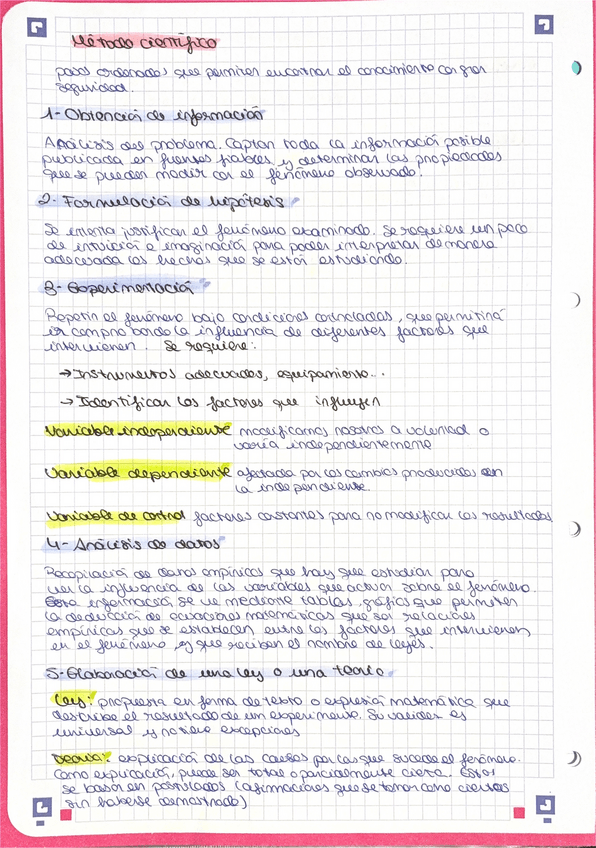 Método científico
pasos ordenados que permiten encontrar el conocimiento con gran
seguridad.
1- Obtención de información
Análisis del problema. Captan toda la información posible
publicada en fuentes fiables y determinan las propiedades
que se pueden medir con el fenómeno observado.
2- Formulación de hipótesis
Se intenta justificar el fenómeno examinado. Se requiere un poco
de intuición e imaginación para poder interpretar de manera
adecuada los hechos que se están estudiando.
3- Experimentación
Repetir el fenómeno bajo condiciones controladas, que permitirá
ir comprobando la influencia de diferentes factores que
intervienen. Se requiere:
→ Instrumentos adecuados, equipamiento...
→ Identificar los factores que influyen
Variable independiente modificamos nosotros a voluntad o
varía independientemente
Variable dependiente afectada por los cambios producidos en
la independiente.
Variable de control factores constantes para no modificar los resultados
4- Análisis de datos
Recopilación de datos empíricos que hay que estudiar para
ver la influencia de las variables que actúan sobre el fenómeno.
Esta información se ve mediante tablas, gráficas que permiten
la deducción de ecuaciones matemáticas que son relaciones
empíricas que se establecen entre los factores que intervienen
en el fenómeno y que reciben el nombre de leyes.
5- Elaboración de una ley o una teoría
Ley: propuesta en forma de texto o expresión matemática que
describe el resultado de un experimento. Su validez es
universal y no tiene excepciones
Teoría: explicación de las causas por las que sucede el fenómeno.
Como explicación, puede ser total o parcialmente cierta. Estas
se basan en postulados (afirmaciones que se toman como ciertas
sin haberse demostrado)